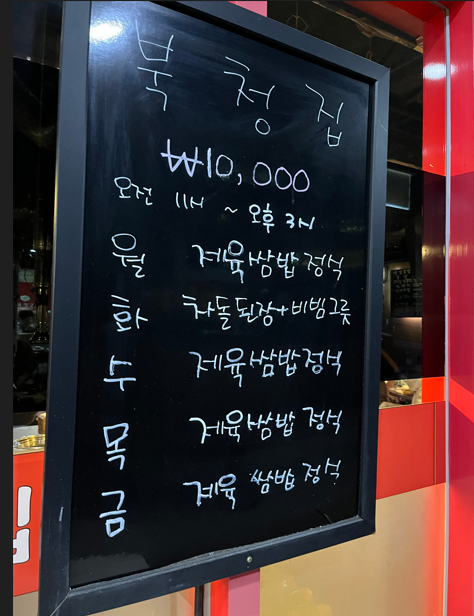 북청집
₩10,000
오전 11시 ~ 오후 3시
월 제육쌈밥 정식
화 차돌된장+비빔그릇
수 제육쌈밥정식
목 제육쌈밥 정식
금 제육 쌈밥 정식